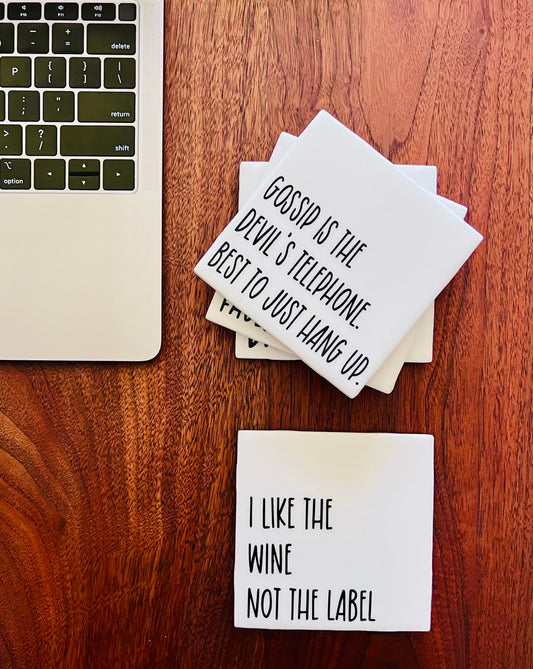 delete
P
{ [
} ]
| \
: ;
" '
return
>
? /
shift
option
GOSSIP IS THE
DEVIL'S TELEPHONE.
BEST TO JUST HANG UP.
I LIKE THE
WINE
NOT THE LABEL